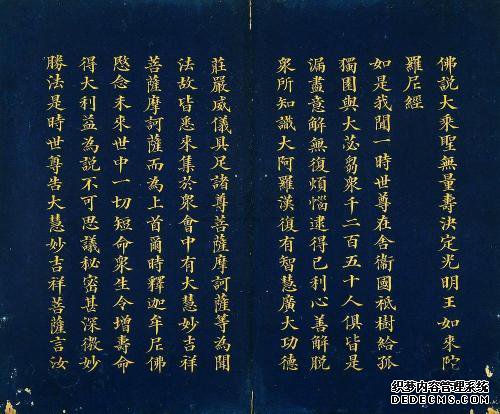 佛說大乘聖無量壽決定光明王如來陀
羅尼經
如是我聞一時世尊在舍衞國祇樹給孤
獨園與大苾芻衆千二百五十人俱皆是
漏盡意解無復煩惱逮得已利心善解脫
衆所知識大阿羅漢復有智慧廣大功德
莊嚴威儀具足諸尊菩薩摩訶薩等為聞
法故皆悉來集於衆會中有大慧妙吉祥
菩薩摩訶薩而為上首爾時釋迦牟尼佛
愍念未來世中一切短命衆生令增壽命
得大利益為說不可思議秘密甚深微妙
勝法是時世尊告大慧妙吉祥菩薩言汝
织梦内容管理系统
DEDECMS.COM